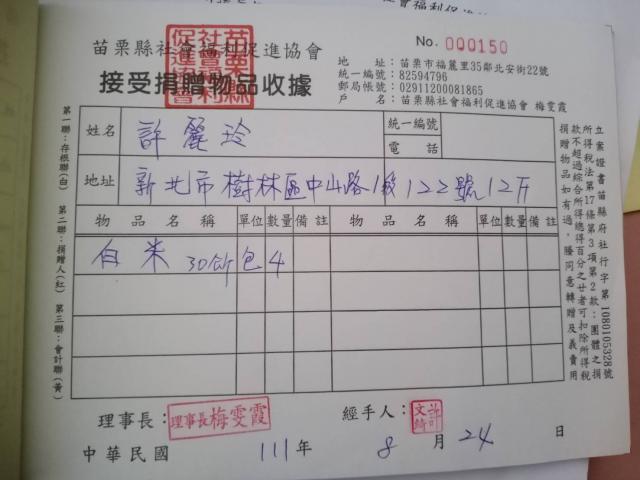 苗栗縣社會福利促進協會
No. 000150
接受捐贈物品收據
苗栗縣社會福利促進協會
地 址：苗栗市福麗里35鄰北安街22號
統一編號：82594796
郵局帳號：02911200081865
戶 名：苗栗縣社會福利促進協會 梅雯霞
姓名 許麗玲 統一編號
電 話
地址 新北市樹林區中山路1段122號12F
物品名稱 單位 數量 備註 物品名稱 單位 數量 備註
白米 30斤 包 4
第一聯：存根聯(白) 第二聯：捐贈人(紅) 第三聯：會計聯(黃)
立案證書苗縣府社行字第1080105328號
所得稅法第17條第3項第2款：團體之捐
款不超過綜合所得總得百分之廿者可扣除所得稅
捐贈物品如有過，謄同意轉贈及義賣用
理事長：理事長梅雯霞 經手人：許文綺
中華民國 111 年 8 月 24 日